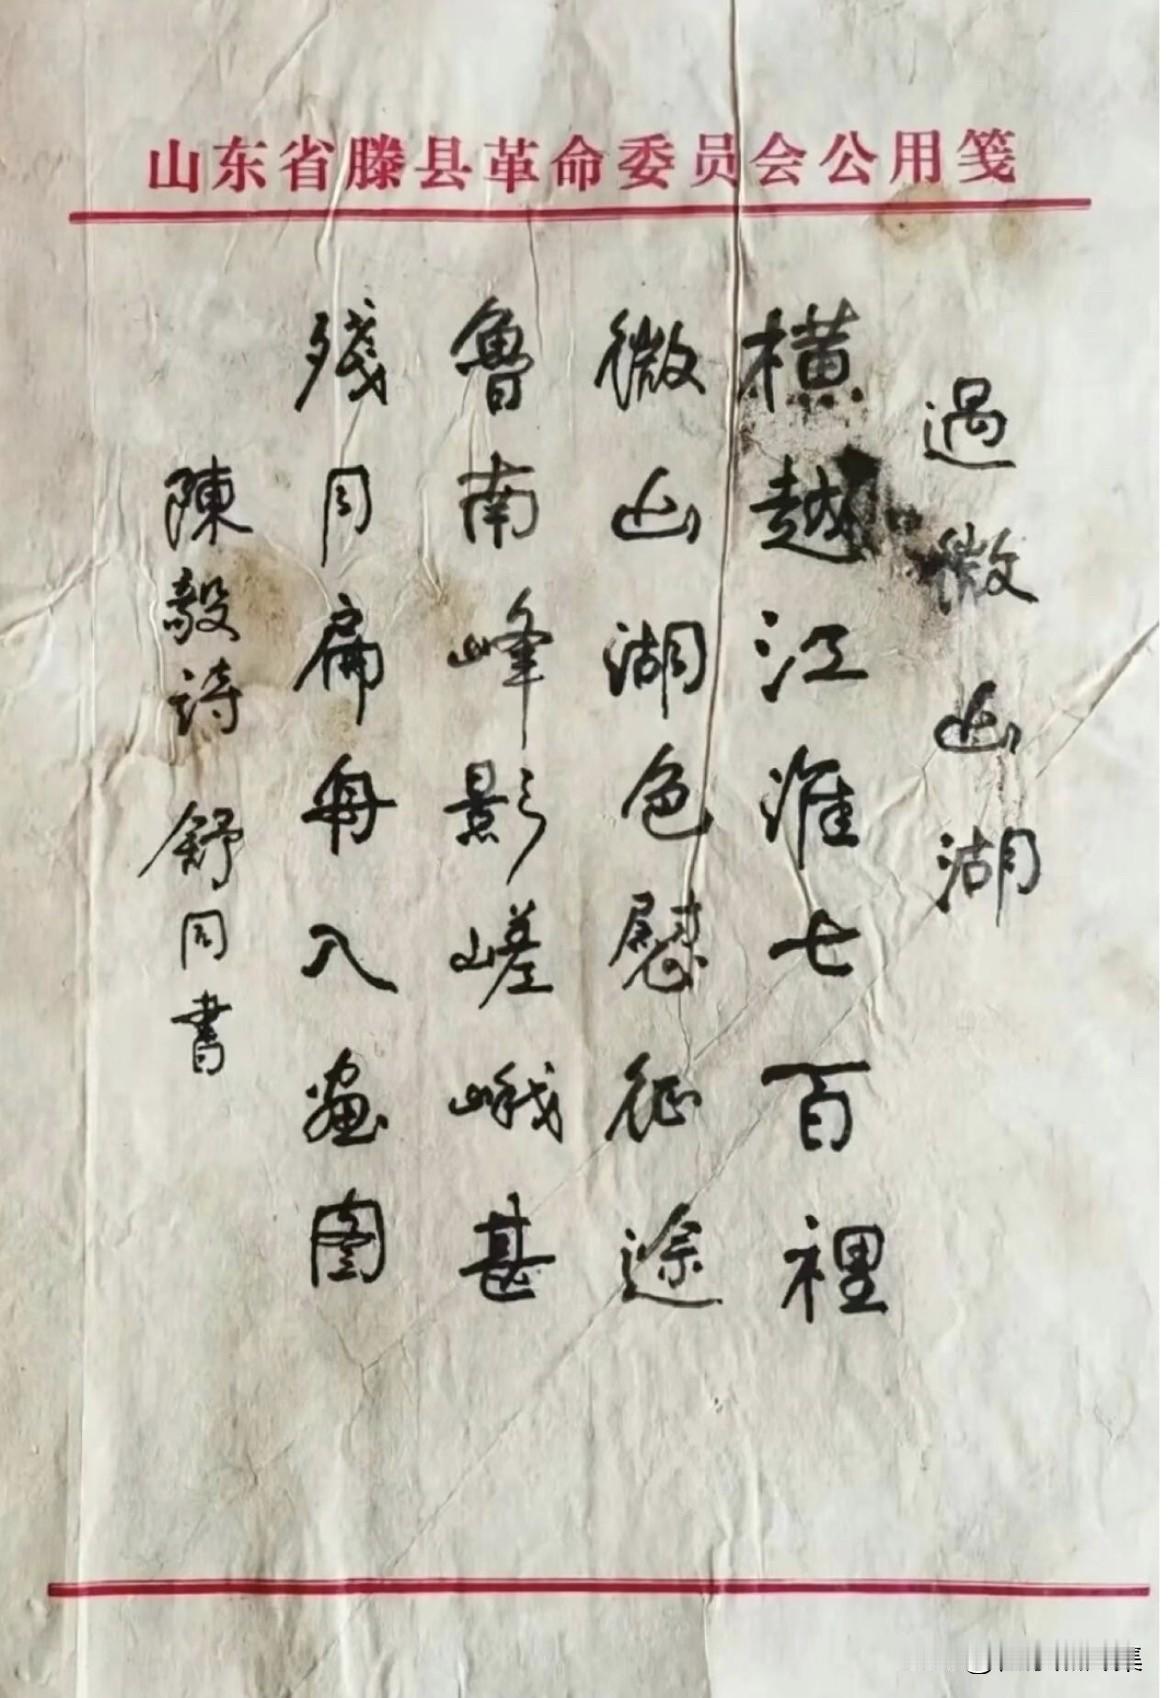 山东省滕县革命委员会公用笺
過微山湖
横越江淮七百裡
微山湖色慰征途
魯南峰影嵯峨甚
殘月扁舟入画圖
陳毅詩 舒同書
集